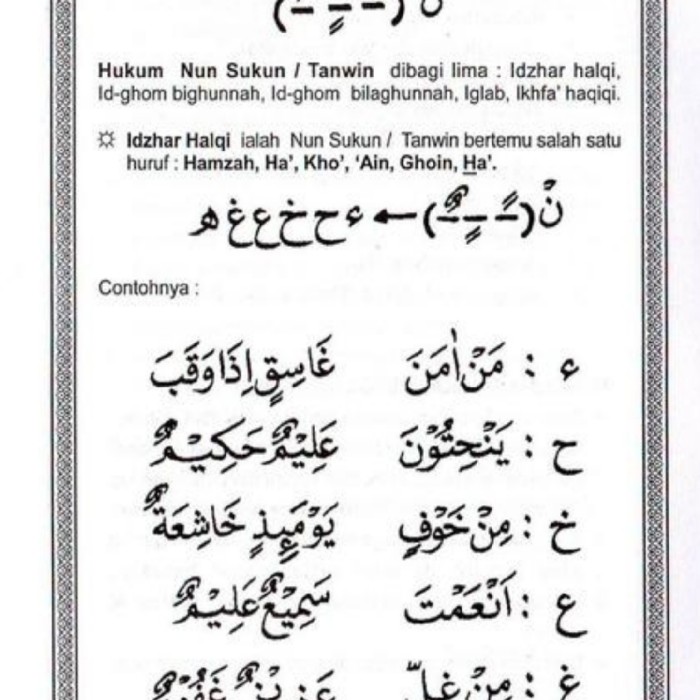 نْ (ــًــٍــٌ)
Hukum Nun Sukun / Tanwin dibagi lima : Idzhar halqi,
Id-ghom bighunnah, Id-ghom bilaghunnah, Iglab, Ikhfa' haqiqi.
☼ Idzhar Halqi ialah Nun Sukun / Tanwin bertemu salah satu
huruf : Hamzah, Ha', Kho', 'Ain, Ghoin, Ha'.
نْ (ــًــٍــٌ) ← ء ح خ ع غ ه
Contohnya :
ء : مَنْ اٰمَنَ غَاسِقٍ اِذَا وَقَبَ
ح : يَنْحِتُوْنَ عَلِيْمٌ حَكِيْمٌ
خ : مِنْ خَوْفٍ يَوْمَئِذٍ خَاشِعَةٌ
ع : اَنْعَمْتَ سَمِيْعٌ عَلِيْمٌ
غ : مِنْ غِلٍّ عَزِيْزٌ غَفُوْرٌ